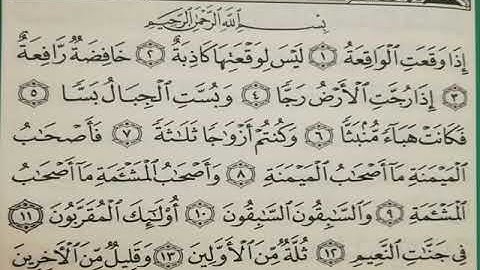 بِسْمِ اللَّهِ الرَّحْمَٰنِ الرَّحِيمِ
إِذَا وَقَعَتِ الْوَاقِعَةُ ١ لَيْسَ لِوَقْعَتِهَا كَاذِبَةٌ ٢ خَافِضَةٌ رَّافِعَةٌ
٣ إِذَا رُجَّتِ الْأَرْضُ رَجًّا ٤ وَبُسَّتِ الْجِبَالُ بَسًّا ٥
فَكَانَتْ هَبَاءً مُّنبَثًّا ٦ وَكُنتُمْ أَزْوَاجًا ثَلَاثَةً ٧ فَأَصْحَابُ
الْمَيْمَنَةِ مَا أَصْحَابُ الْمَيْمَنَةِ ٨ وَأَصْحَابُ الْمَشْأَمَةِ مَا أَصْحَابُ
الْمَشْأَمَةِ ٩ وَالسَّابِقُونَ السَّابِقُونَ ١٠ أُولَٰئِكَ الْمُقَرَّبُونَ ١١
فِي جَنَّاتِ النَّعِيمِ ١٢ ثُلَّةٌ مِّنَ الْأَوَّلِينَ ١٣ وَقَلِيلٌ مِّنَ الْآخِرِينَ